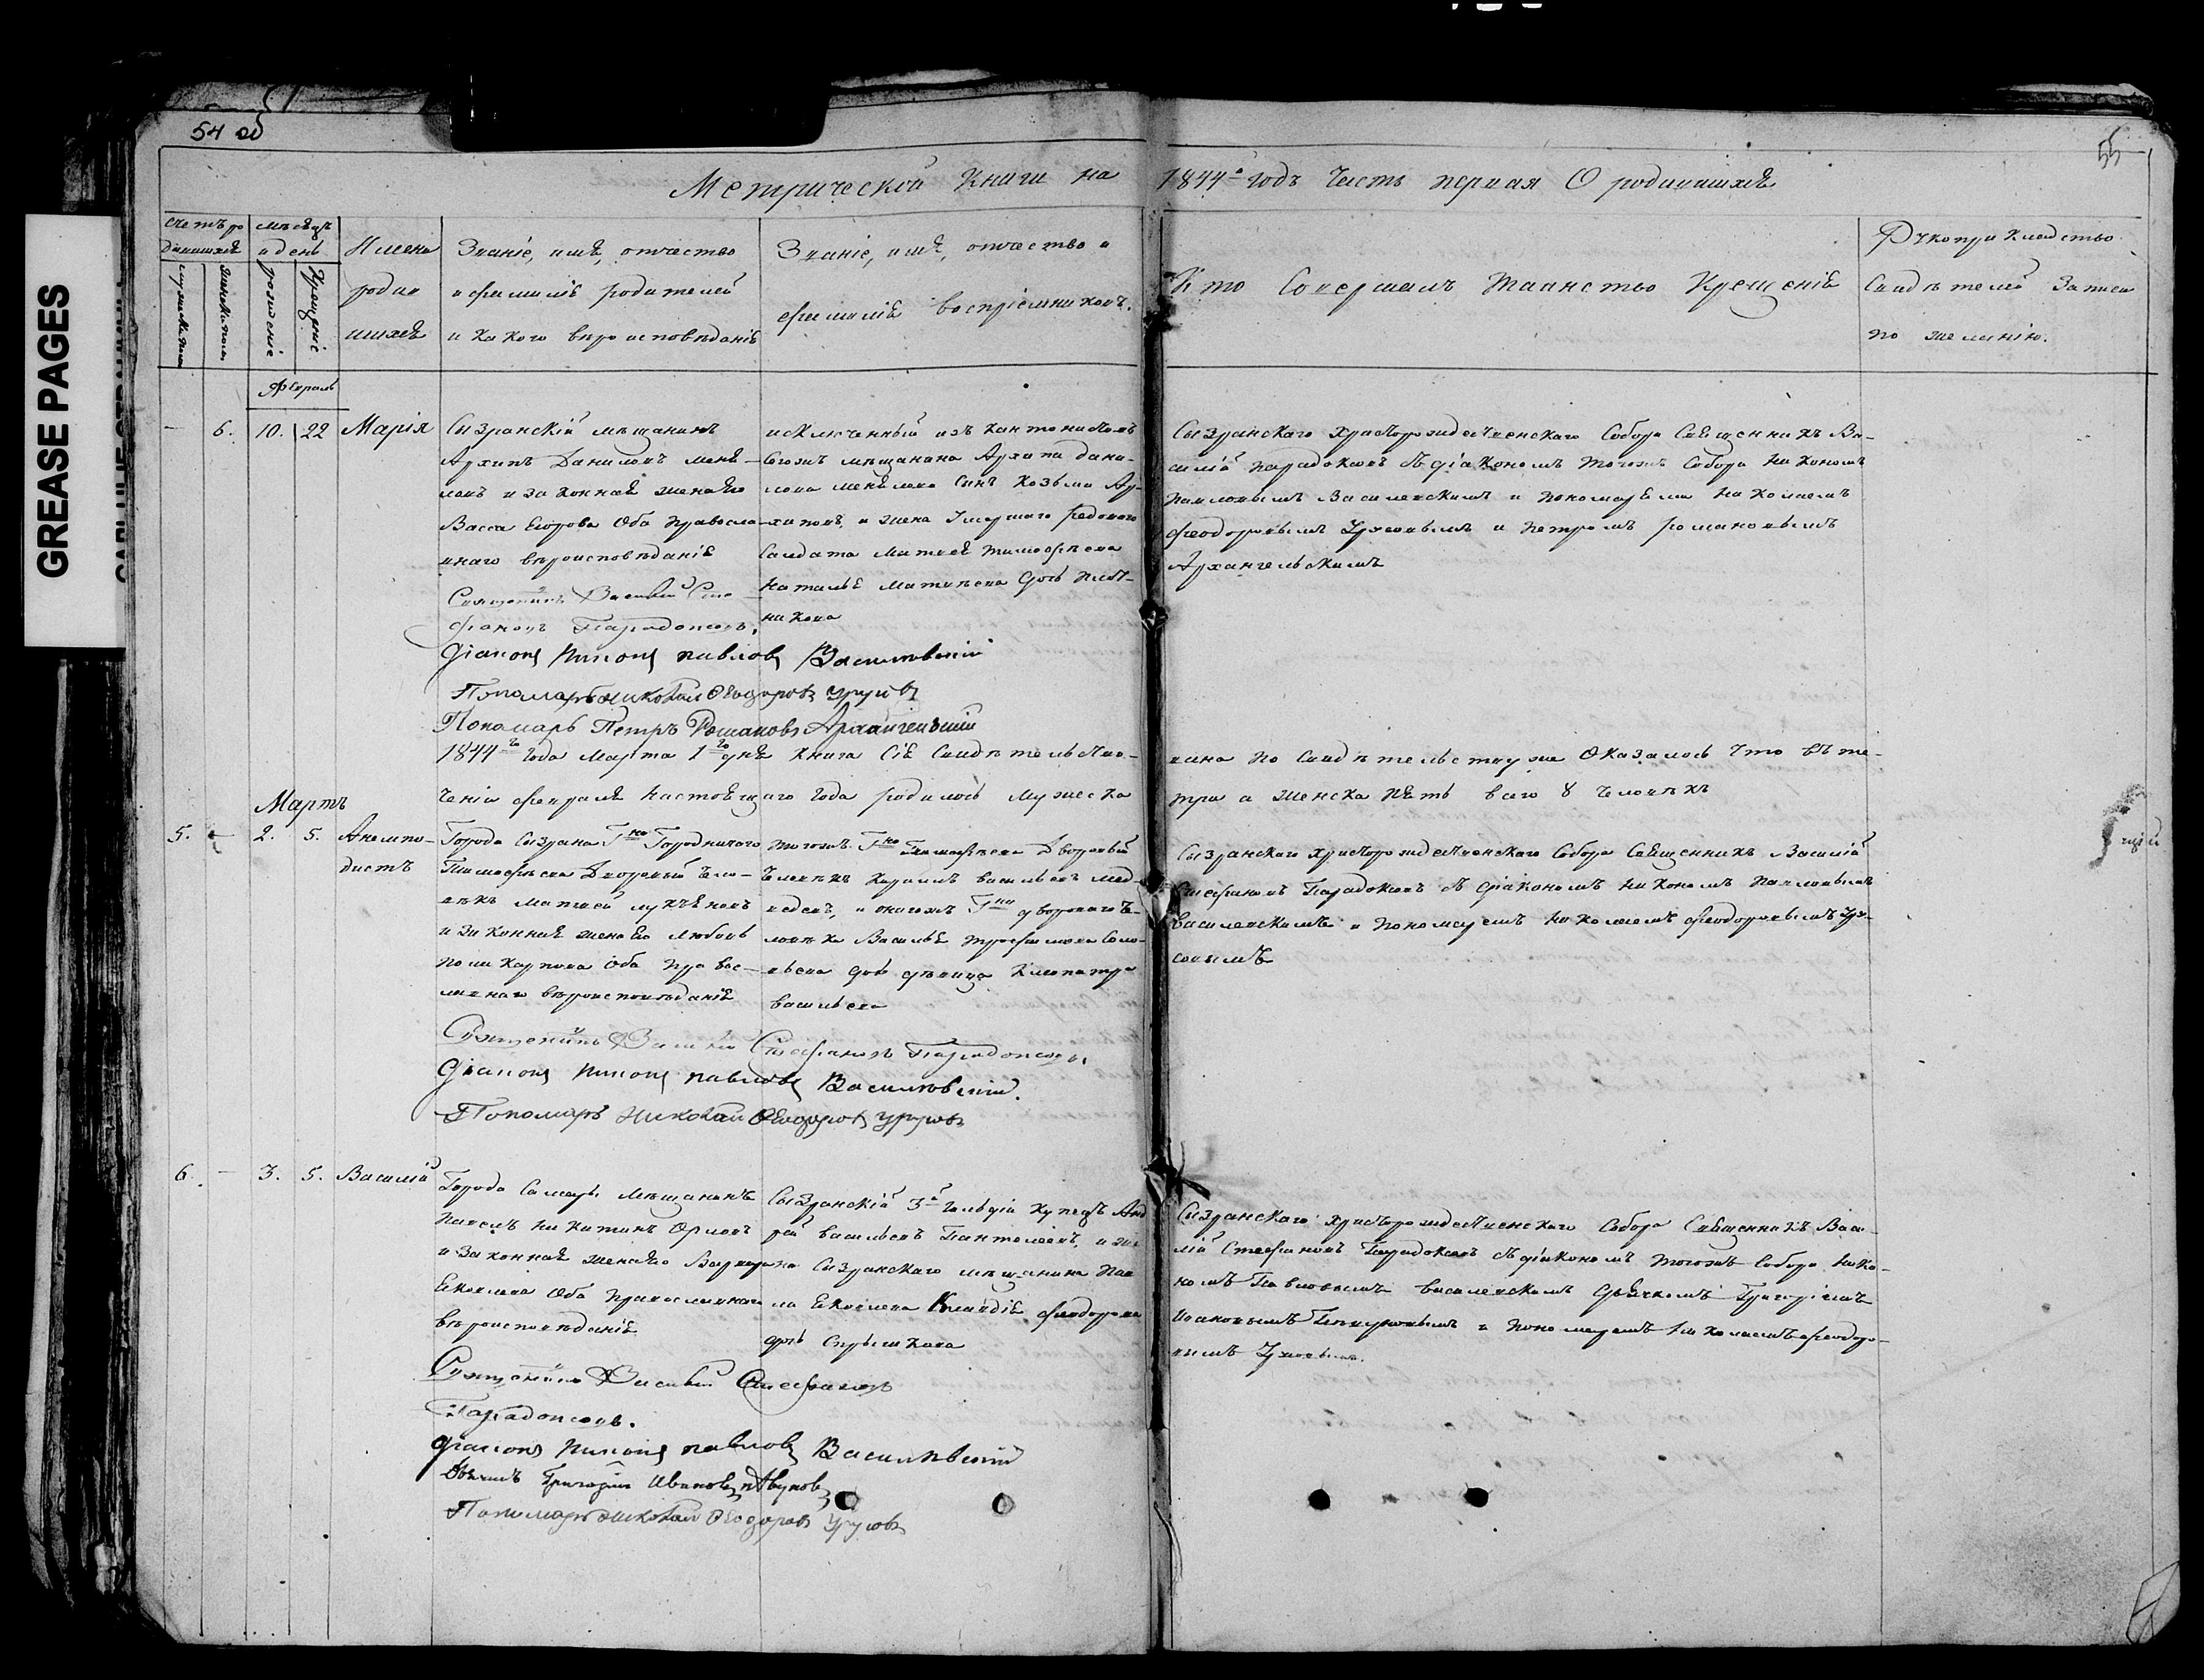 54 об
55
GREASE PAGES
Метрической Книги на 1844й годъ Часть первая О родившихся
счетъ родившихся
мѣсяцъ и день
мужеска пола
женска пола
рожденіе
Крещеніе
Имена родившихся
Званіе, имя, отчество
и фамилія родителей
и какого вѣроисповѣданія
Званіе, имя, отчество и
фамилія воспріемниковъ.
Кто Совершалъ таинство Крещенія
Рукоприкладство
Свидѣтелей Записи
по желанію.
Февраль
6. 10. 22 Марія
Сызранскій мѣщанинъ
Архипъ Даниловъ
и законная жена его
Васса Егорова Оба Правосла-
внаго вѣроисповѣданія
исключенный изъ кантонистовъ
тогожъ мѣщанина Архипа Дани-
лова сынъ Козьма Ар-
хиповъ, и жена Умершаго рядоваго
Солдата Матвея Тимофѣева
Наталья Матвѣева дочь
никова
Сызранскаго христорождественскаго Собора Священникъ Ва-
силій Парадоксовъ съ діакономъ тогожъ Собора Никономъ
Павловымъ Василевскимъ и пономарями Николаемъ
Феодоровымъ и Петромъ Романовымъ
Архангельскимъ
Священникъ Василій Сте-
фановъ Парадоксовъ.
Діаконъ Никонъ Павловъ Василевскій
Пономарь Николай Ѳеодоровъ
Пономарь Петръ Романовъ Архангельскій
1844го года Марта 1го дня Книга Сія Свидѣтельство-
вана по Свидѣтельству же Оказалось что въ те-
ченіи февраля настоящаго года родилось мужеска
три а женска пять всего 8 человѣкъ
Мартъ
5. – 2. 5. Анемпо-
дистъ
Города Сызрана Гна Городничаго
Тимофѣева Дворовый чело-
вѣкъ Матвей
и законная жена его Любовь
Поликарпова Оба право-
славнаго вѣроисповѣданія
тогожъ Гна Тимофѣева Дворовый
человѣкъ Васильевъ Мед-
ведевъ, и онагожъ Гна двороваго че-
ловѣка Василья Трофимова
дочь дѣвица Клеопатра
Васильева
Сызранскаго христорождественскаго Собора Священникъ Василій
Стефановъ Парадоксовъ съ діакономъ Никономъ Павловымъ
Василевскимъ и пономаремъ Николаемъ Феодоровымъ
Священникъ Василій Стефановъ Парадоксовъ.
Діаконъ Никонъ Павловъ Василевскій.
Пономарь Николай Ѳеодоровъ
6. – 3. 5. Василій
Города Самары Мѣщанинъ
Павелъ Никитинъ Орловъ
и законная жена его Варвара
Яковлева Оба православнаго
вѣроисповѣданія
Сызранскій 3й гильдіи купецъ Анд
рей Васильевъ Пантелеевъ, и же
на Сызранскаго мѣщанина Пав
ла Яковлева Клавдія Феодорова
дочь
Сызранскаго христорождественскаго Собора Священникъ Васи-
лій Стефановъ Парадоксовъ съ діакономъ тогожъ Собора Нико-
номъ Павловымъ Василевскимъ Дьячкомъ Григоріемъ
Ивановымъ и пономаремъ Николаемъ Феодоро-
вымъ
Священникъ Василій Стефановъ
Парадоксовъ.
Діаконъ Никонъ Павловъ Василевскій
Дьячекъ Григорій Ивановъ
Пономарь Николай Ѳеодоровъ